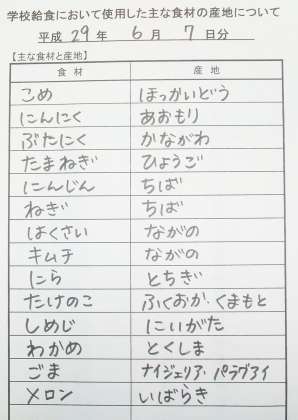 学校給食において使用した主な食材の産地について
平成 29 年 6 月 7 日分
【主な食材と産地】
食材 産地
こめ ほっかいどう
にんにく あおもり
ぶたにく かながわ
たまねぎ ひょうご
にんじん ちば
ねぎ ちば
はくさい ながの
キムチ ながの
にら とちぎ
たけのこ ふくおか・くまもと
しめじ にいがた
わかめ とくしま
ごま ナイジェリア・パラグアイ
メロン いばらき